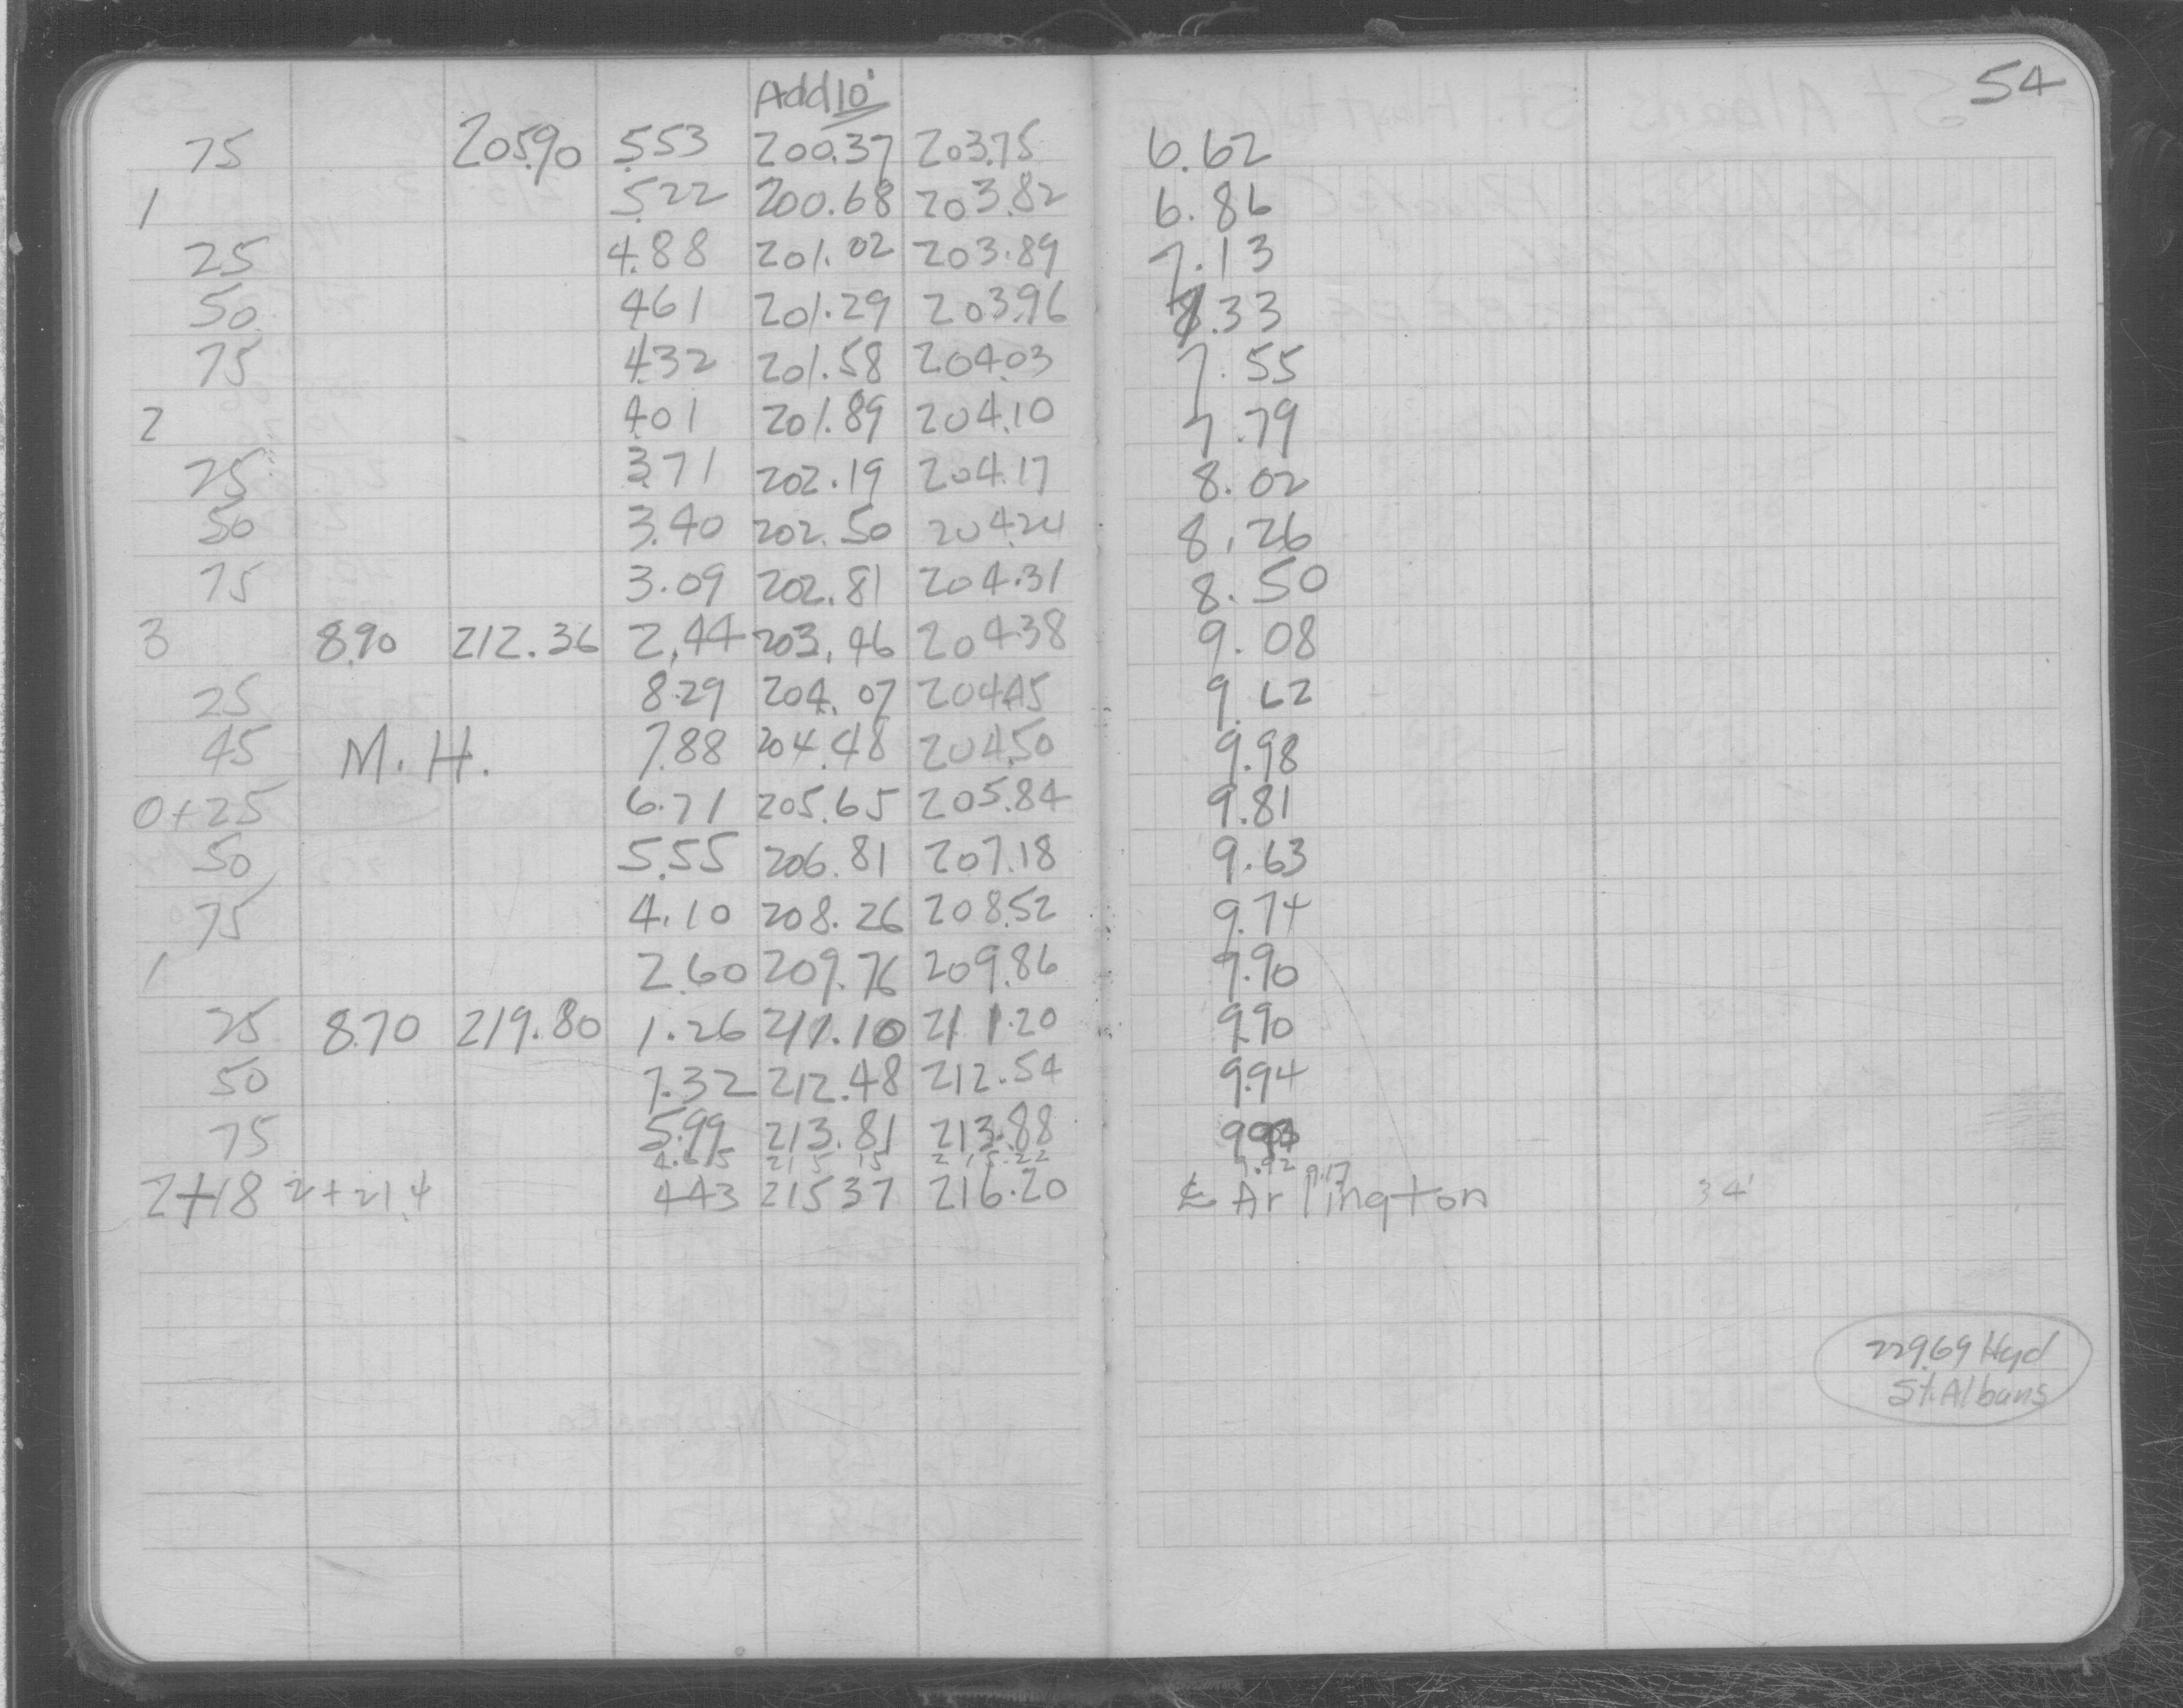 54
Add 10'
75 205.90 5.53 200.37 203.75 6.62
1 5.22 200.68 203.82 6.86
25 4.88 201.02 203.89 7.13
50 4.61 201.29 203.96 7.33
75 4.32 201.58 204.03 7.55
2 4.01 201.89 204.10 7.79
25 3.71 202.19 204.17 8.02
50 3.40 202.50 204.24 8.26
75 3.09 202.81 204.31 8.50
3 8.90 212.36 2.44 203.46 204.38 9.08
25 8.29 204.07 204.45 9.62
45 M.H. 7.88 204.48 204.50 9.98
0+25 6.71 205.65 205.84 9.81
50 5.55 206.81 207.18 9.63
75 4.10 208.26 208.52 9.74
1 2.60 209.76 209.86 9.90
25 8.70 219.80 1.26 211.10 211.20 9.90
50 7.32 212.48 212.54 9.94
75 5.99 213.81 213.88 9.93
4.65 215.15 215.22 9.92
2+18 2+21.4 4.43 215.37 216.20 ℄ Arlington 9.17 34'
229.69 Hyd
St. Albans